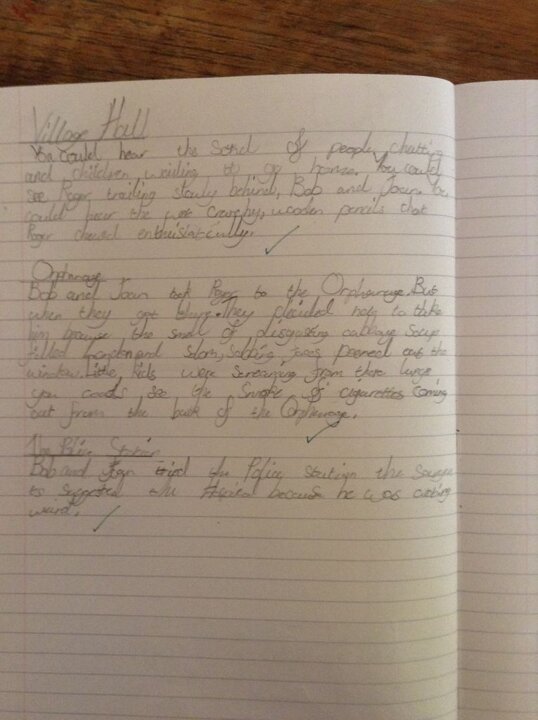 Village Hall
You could hear the sond of people chatting
and children wailing to go home. You could
see Roger trailing slowly behind, Bob and Joan
could hear the crunchy, wooden pencils that
Roger chewed
Orphanage
Bob and Joan took Roger to the Orphanage. But
when they got there. They decided not to take
him because the smell of disgusting cabbage Soup
filled London and Sobbing faces peered out the
window. Little kids were Screaming from there lungs
you could see the Smoke of cigarettes coming
out from the back of the Orphanage.
The Police Station
Bob and Joan tried the Police the
to the because he was
weird.